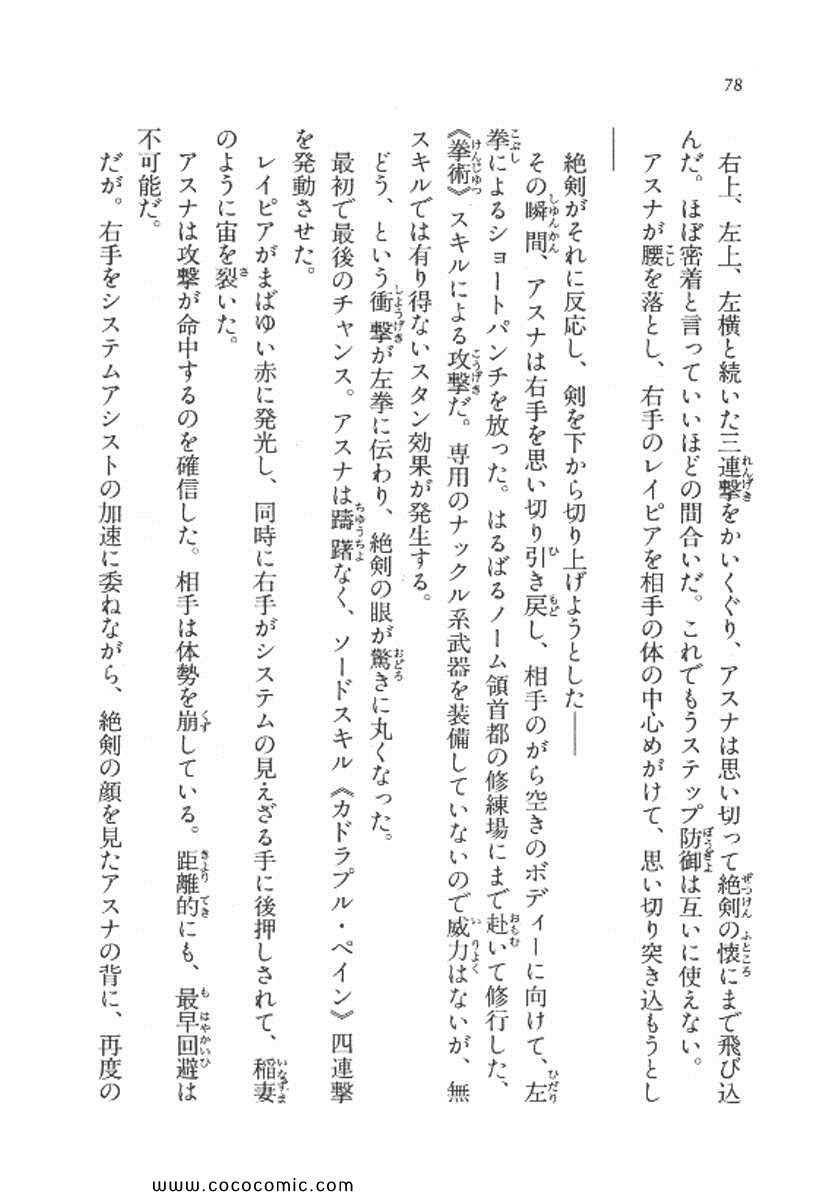 78
右上、左上、左横と続いた三連撃をかいくぐり、アスナは思い切って絶剣の懐にまで飛び込
んだ。ほぼ密着と言っていいほどの間合いだ。これでもうステップ防御は互いに使えない。
アスナが腰を落とし、右手のレイピアを相手の体の中心めがけて、思い切り突き込もうとし
――
絶剣がそれに反応し、剣を下から切り上げようとした――
その瞬間、アスナは右手を思い切り引き戻し、相手のがら空きのボディーに向けて、左
拳によるショートパンチを放った。はるばるノーム領首都の修練場にまで赴いて修行した、
《拳術》スキルによる攻撃だ。専用のナックル系武器を装備していないので威力はないが、無
スキルでは有り得ないスタン効果が発生する。
どう、という衝撃が左拳に伝わり、絶剣の眼が驚きに丸くなった。
最初で最後のチャンス。アスナは躊躇なく、ソードスキル《カドラプル・ペイン》四連撃
を発動させた。
レイピアがまばゆい赤に発光し、同時に右手がシステムの見えざる手に後押しされて、稲妻
のように宙を裂いた。
アスナは攻撃が命中するのを確信した。相手は体勢を崩している。距離的にも、最早回避は
不可能だ。
だが。右手をシステムアシストの加速に委ねながら、絶剣の顔を見たアスナの背に、再度の
www.cococomic.com